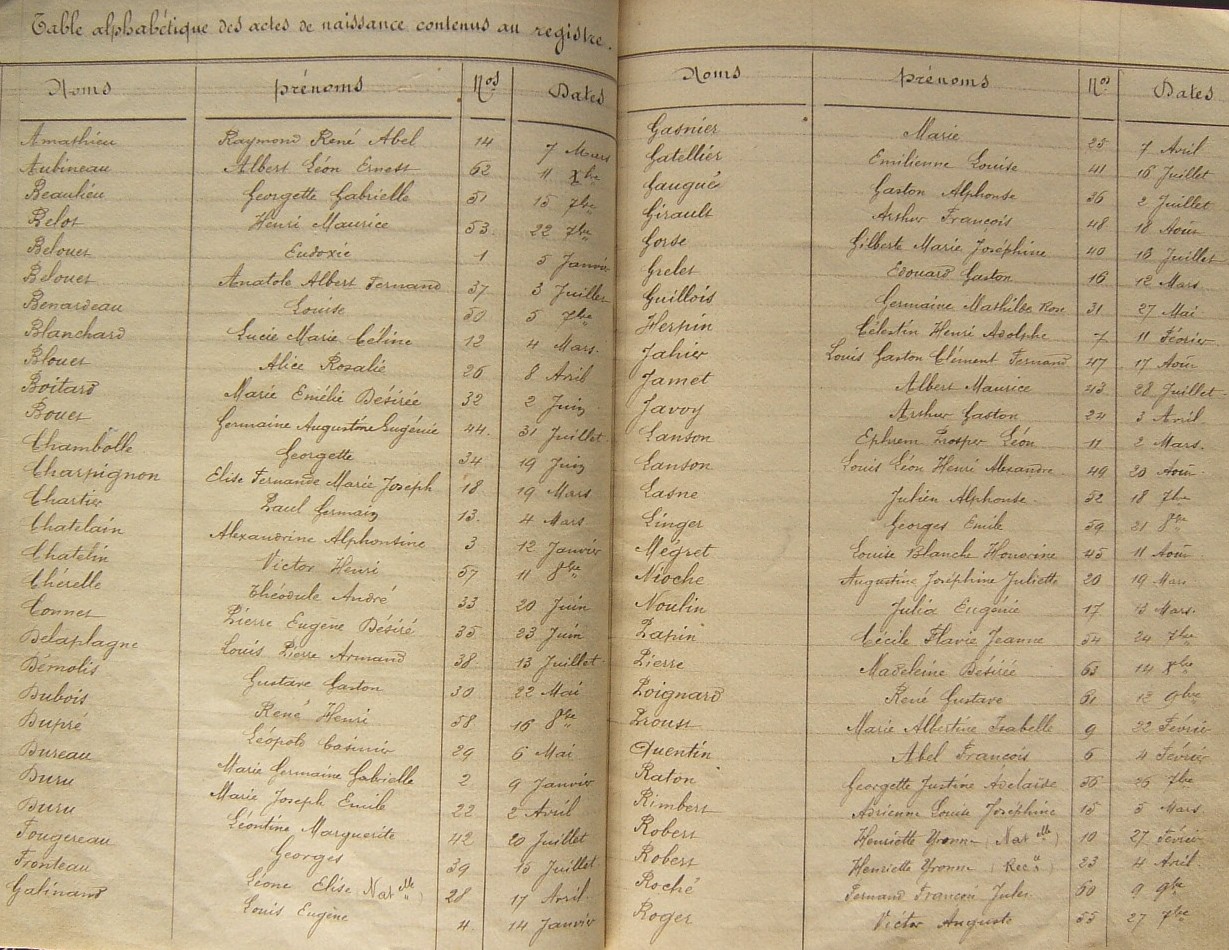 Table alphabétique des actes de naissance contenus au registre.
Noms Prénoms Nos Dates
Amathieu Raymond René Abel 14 7 Mars
Aubineau Albert Léon Ernest 62 11 Xbre
Beaulieu Georgette Gabrielle 51 15 7bre
Belot Henri Maurice 53 22 7bre
Belouet Eudoxie 1 5 Janvier
Belouet Anatole Albert Fernand 37 3 Juillet
Benardeau Louise 50 5 7bre
Blanchard Lucie Marie Céline 12 4 Mars.
Blouet Alice Rosalie 26 8 Avril
Boitard Marie Emélie Désirée 32 2 Juin
Bouet Germaine Augustine Eugénie 44. 31 Juillet.
Chambolle Georgette 34 19 Juin
Charpignon Elise Fernande Marie Joseph 18 19 Mars
Chartier Paul Germain 13. 4 Mars
Chatelain Alexandrine Alphonsine 3 12 Janvier
Chatelin Victor Henri 57 11 8bre
Chérelle Théodule André 33 20 Juin
Connet Pierre Eugène Désiré 35 23 Juin
Delaplagne Louis Pierre Armand 38 13 Juillet.
Démolis Gustave Gaston 30 22 Mai
Dubois René Henri 58 16 8bre
Dupré Léopold Casimir 29 6 Mai
Bureau Marie Germaine Gabrielle 2 9 Janvier
Duru Marie Joseph Emile 22 2 Avril
Duru Léontine Marguerite 42 20 Juillet
Fougereau Georges 39 15 Juillet
Fronteau Léone Elise (Natelle) 28 17 Avril.
Galinand Louis Eugène 4. 14 Janvier
Noms Prénoms Nos Dates
Gasnier Marie 25 7 Avril
Gatellier Emilienne Louise 41 16 Juillet
Gaugué Gaston Alphonse 36 2 Juillet
Girault Arthur François 48 18 Août
Gorse Gilberte Marie Joséphine 40 16 Juillet
Grelet Edouard Gaston 16 12 Mars.
Guillois Germaine Mathilde Rose 31 27 Mai
Herpin Célestin Henri Adolphe 7 11 Février
Jahier Louis Gaston Clément Fernand 47 17 Août
Jamet Albert Maurice 43 28 Juillet.
Javoy Arthur Gaston 24 3 Avril
Lanson Ephrem Prosper Léon 11 2 Mars.
Lanson Louis Léon Henri Alexandre 49 20 Août
Lasne Julien Alphonse. 52 18 7bre
Linger Georges Emile 59 21 8bre
Mégret Louise Blanche Honorine 45 11 Août
Nioche Augustine Joséphine Juliette 20 19 Mars
Noulin Julia Eugénie 17 13 Mars.
Papin Cécile Flavie Jeanne 54 24 7bre
Pierre Madeleine Désirée 63 14 Xbre
Poignard René Gustave 61 12 9bre
Proust Marie Albertine Isabelle 9 22 Février
Quentin Abel François 6 4 Février
Raton Georgette Justine Adelaïde 56 26 7bre
Rimbert Adrienne Louise Joséphine 15 5 Mars
Robert Henriette Yvonne (Natelle) 10 27 Février
Robert Henriette Yvonne (Rece) 23 4 Avril.
Roché Fernand François Jules 60 9 9bre
Roger Victor Auguste 55 27 7bre